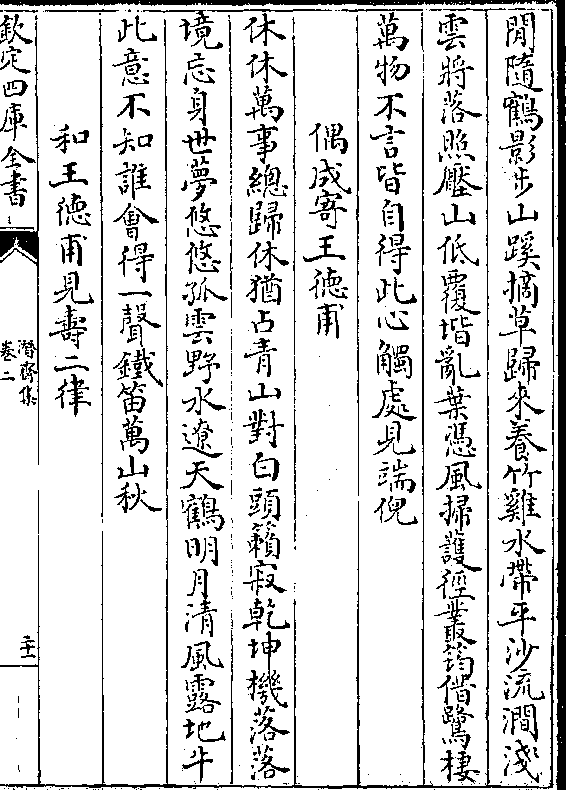 閒隨鶴影步山蹊摘草歸來養竹雞水帶平沙流澗淺
雲將落照壓山低覆堦亂葉憑風掃護徑叢筠借鷺棲
萬物不言皆自得此心觸處見端倪
偶成寄王德甫
休休萬事總歸休猶占青山對白頭籟寂乾坤機落落
境忘身世夢悠悠孤雲野水遼天鶴明月清風露地牛
此意不知誰會得一聲鐵笛萬山秋
和王德甫見壽二律
欽定四庫全書
潛齋集
卷二
二十一